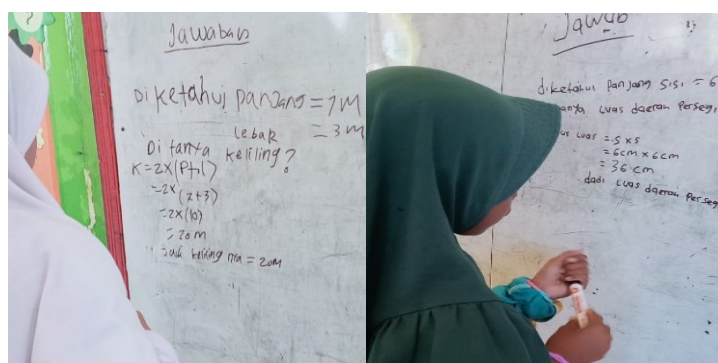 Jawaban
Diketahui panjang = 7 M
Lebar = 3 M
Ditanya keliling?
K = 2x(P+l)
= 2x(7+3)
= 2x(10)
= 20 m
Jadi keliling nya = 20M
Jawab
diketahui panjang sisi = 6
Luas daerah Perseg
Luas = S x S
= 6cm x 6cm
= 36 cm
dadi Luas daerah Perseg